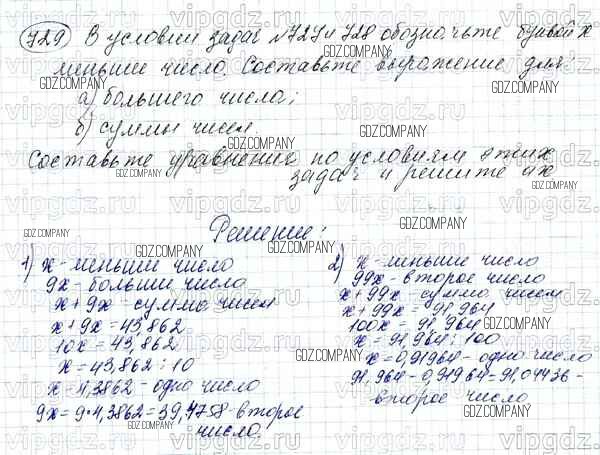 729 В условии задач №727 и 728 обозначьте буквой x
меньшее число. Составьте выражение для:
а) большего числа;
б) суммы чисел
Составьте уравнение по условиям этих
задач и решите их
Решение:
1) x - меньшее число
9x - больши числа
x + 9x - сумма чисел
x + 9x = 43,862
10x = 43,862
x = 43,862 : 10
x = 4,3862 - одно число
9x = 9·4,3862 = 39,4758 - второе
число
2) x - меньши число
99x - второе число
x + 99x - сумма чисел
x + 99x = 91,964
100x = 91,964
x = 91,964 : 100
x = 0,91964 - одно число
91,964 - 0,91964 = 91,04436 -
второе число
vipgdz.ru
GDZ.COMPANY